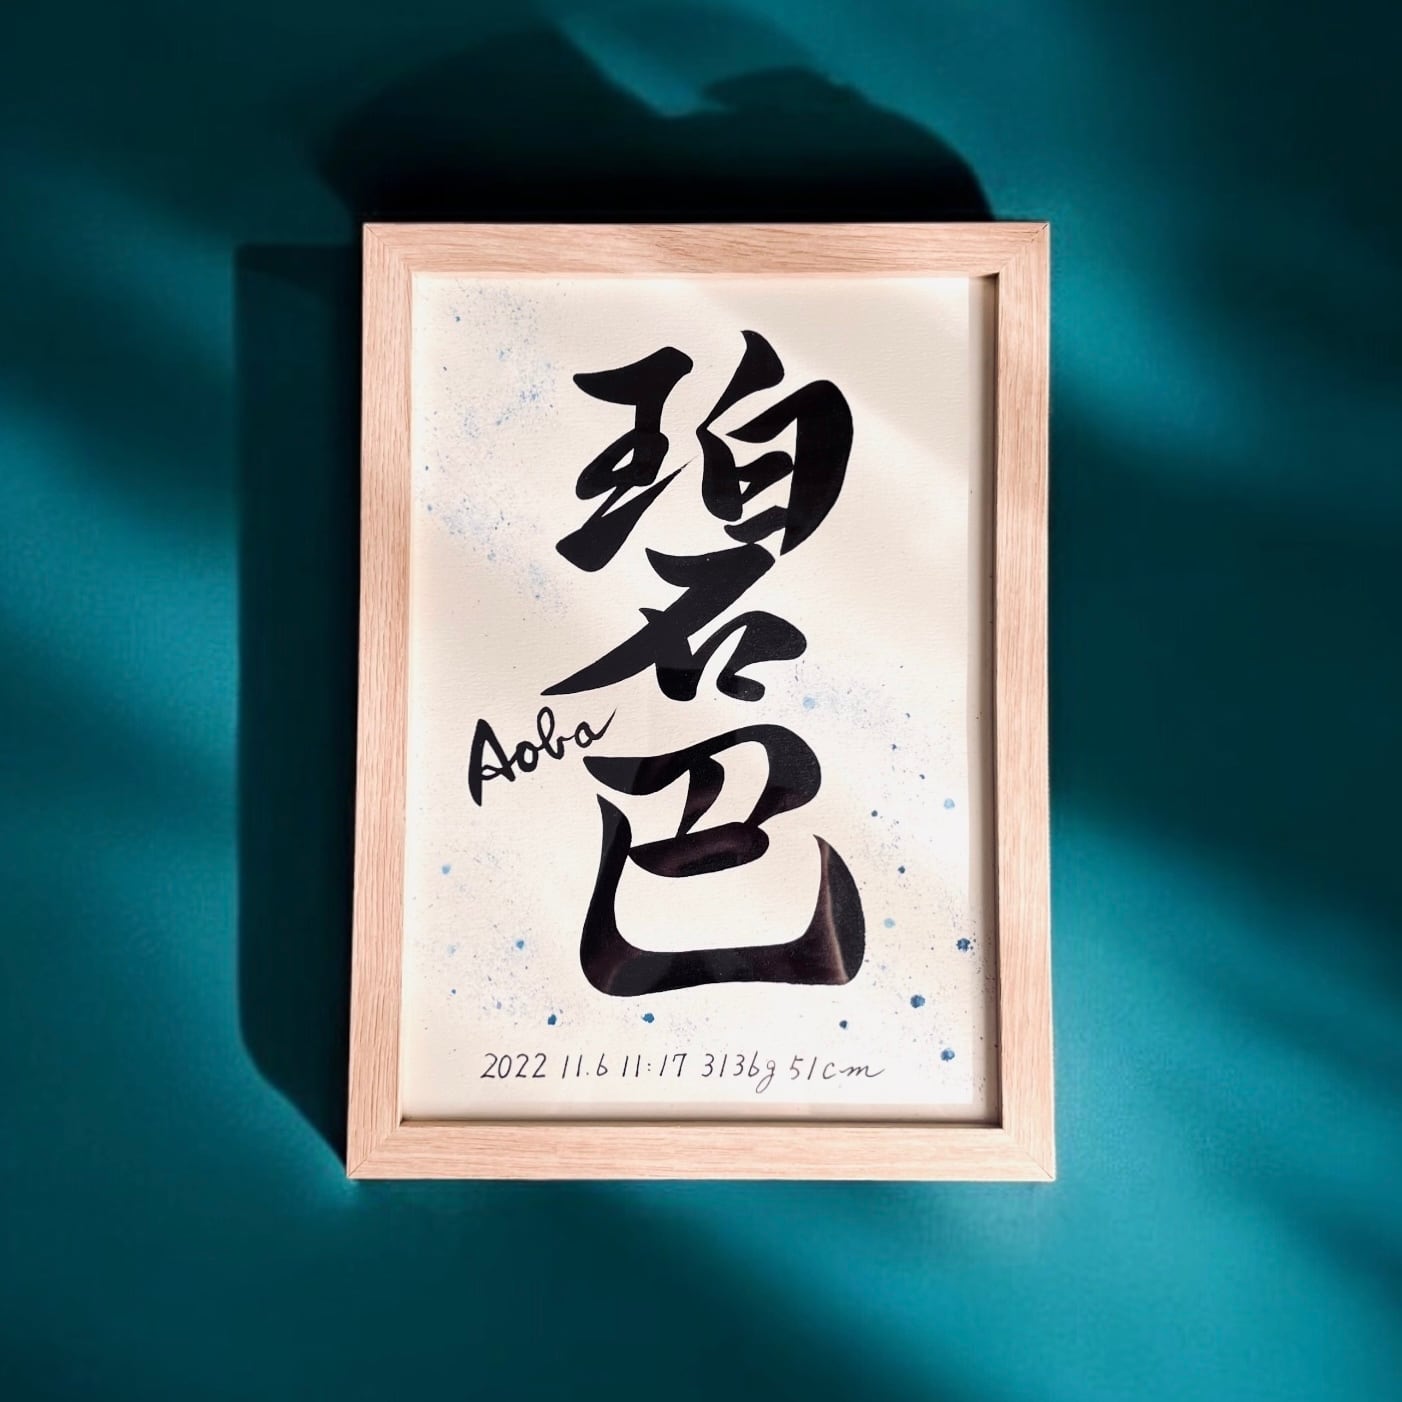 碧巴
Aoba
2022 11.6 11:17 3136g 51cm